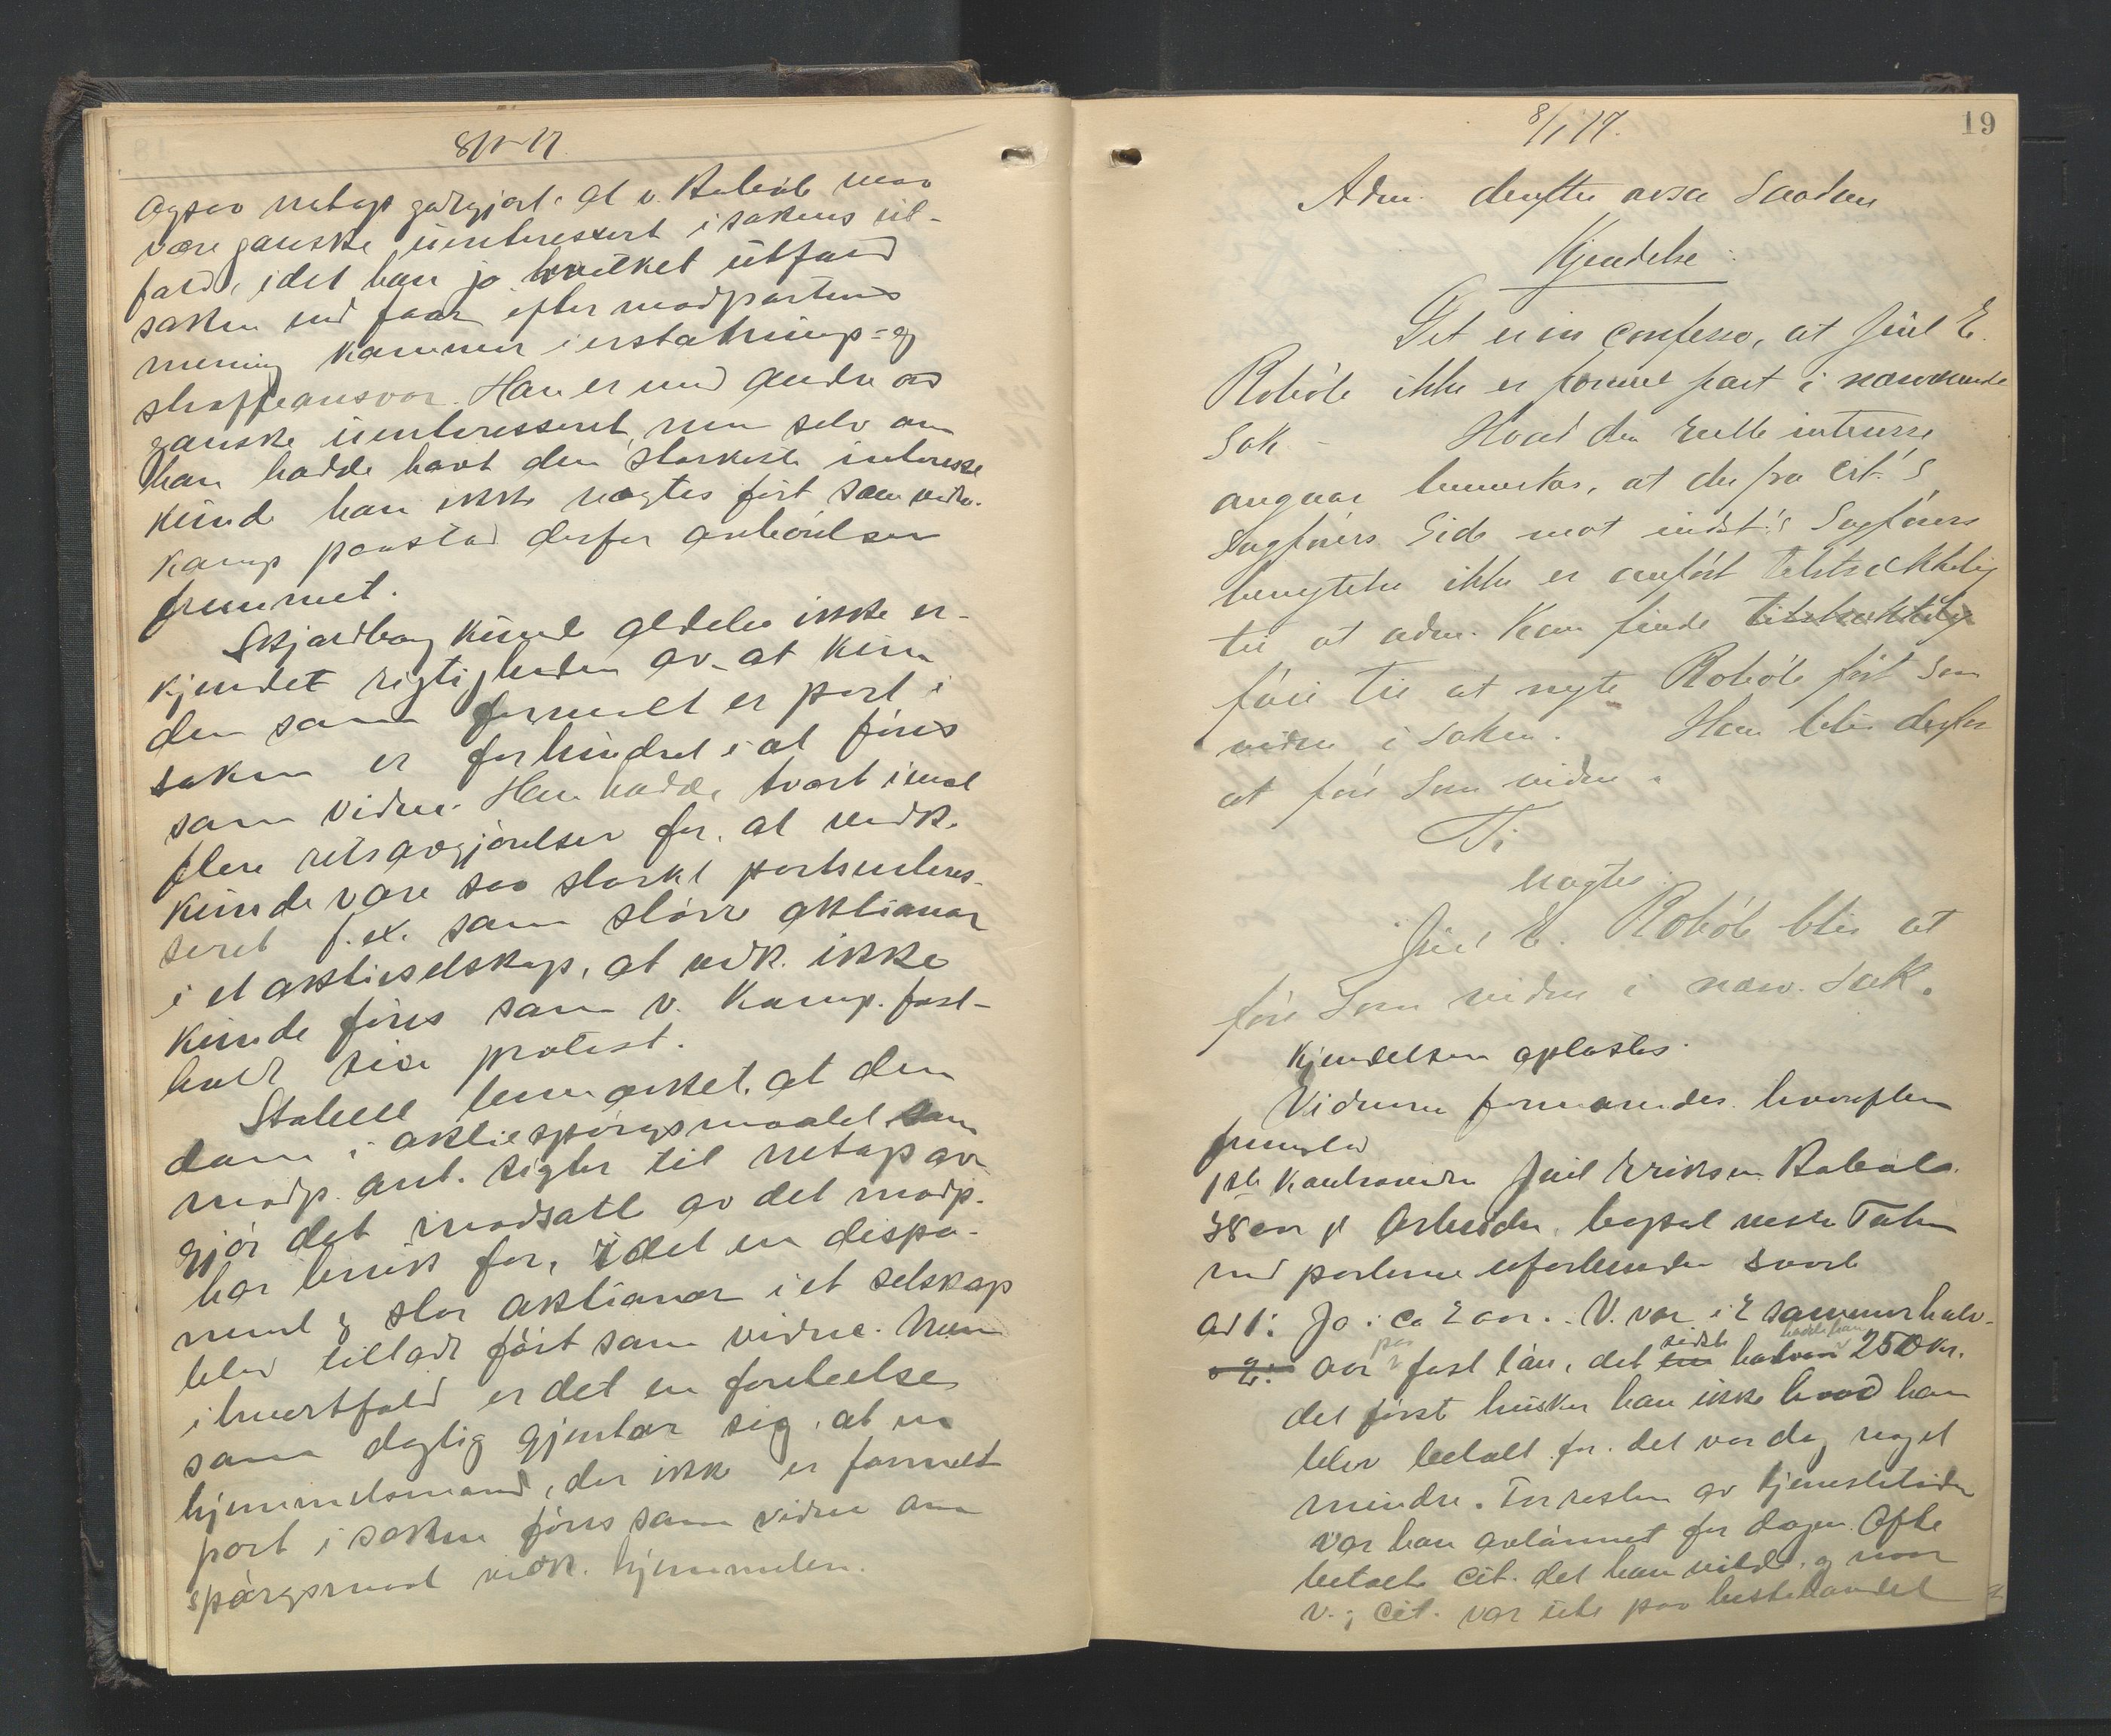 8/1-17
ogsaa netop godtgjort, at v. Robøle maa
være ganske uinteressert i sakens ut-
fald, idet han jo hvilket utfald
saken end faar efter modpartens
mening kommer i erstatnings= og
straffeansvar. Han er med andre ord
ganske uinteresseret, men selv om
han hadde havt den sterkeste interesse
kunde han ikke nægtes ført som vidne.
Komp. paastod derfor avhørelsen
fremmet.
Skjardhaug kunde aldeles ikke er-
kjendet rigtigheden av at kun
den som formelt er part i
saken er forhindret i at føres
som vidne. Han hadde tvert imot
flere retsavgjørelser for, at vedk.
kunde være saa sterkt partsinteres-
seret f. ex. som større aktionær
i et aktieselskap, at vedk. ikke
kunde føres som v. Komp. fast-
holdt sin protest.
Stabell bemerket, at den
dom i aktiespørgsmaalet som
modp. ant. sigter til netop av-
gjør det modsatte av det modp.
har bruk for, idet en dispo-
nent & stor aktionær i et selskap
blev tilladt ført som vidne. Men
ihvertfald er det en foreteelse
som daglig gjentar sig, at en
hjemmelsmand, der ikke er formelt
part i saken føres som vidne om
spørgsmaal vedk. hjemmelen.
8/1 17.
19
Adm. derefter avsa saadan
Kjendelse:
Det er in confesso, at Juul E.
Robøle ikke er formel part i nærværende
Sak – Hvad den reelle interesse
angaar bemerkes, at der fra cit.'s
Sagførers Side mot indst.'s Sagførers
benegtelse ikke er anført tilstrækkelig
til at adm. kan finde tilstrækkelig
føie til at negte Robøle ført som
vidne i saken. Han blir derfor
at føre som vidne.
Ti
nægtes:
Juul E. Robøle blir at
føre som vidne i nærv. Sak.
Kjendelsen oplæstes.
Vidnerne formanedes hvorefter
fremstod
1ste Kontravidne Juul Eriksen Robøle.
38 aar g Arbeider, bopæl nestre Toten
med parterne uforbunden svarte
ad 1: Jo i ca 2 aar. V. var i 2 sommerhalv-
" 2: aar paa fast løn, det sidste halvaar hadde han 250 Kr.
det først husker han ikke hvad han
blev betalt for. det var dog noget
mindre. For resten av tjenestetiden
var han avlønnet for dagen. Ofte
betalte cit. det han vilde, og naar
v. & cit. var ute paa hestehandel